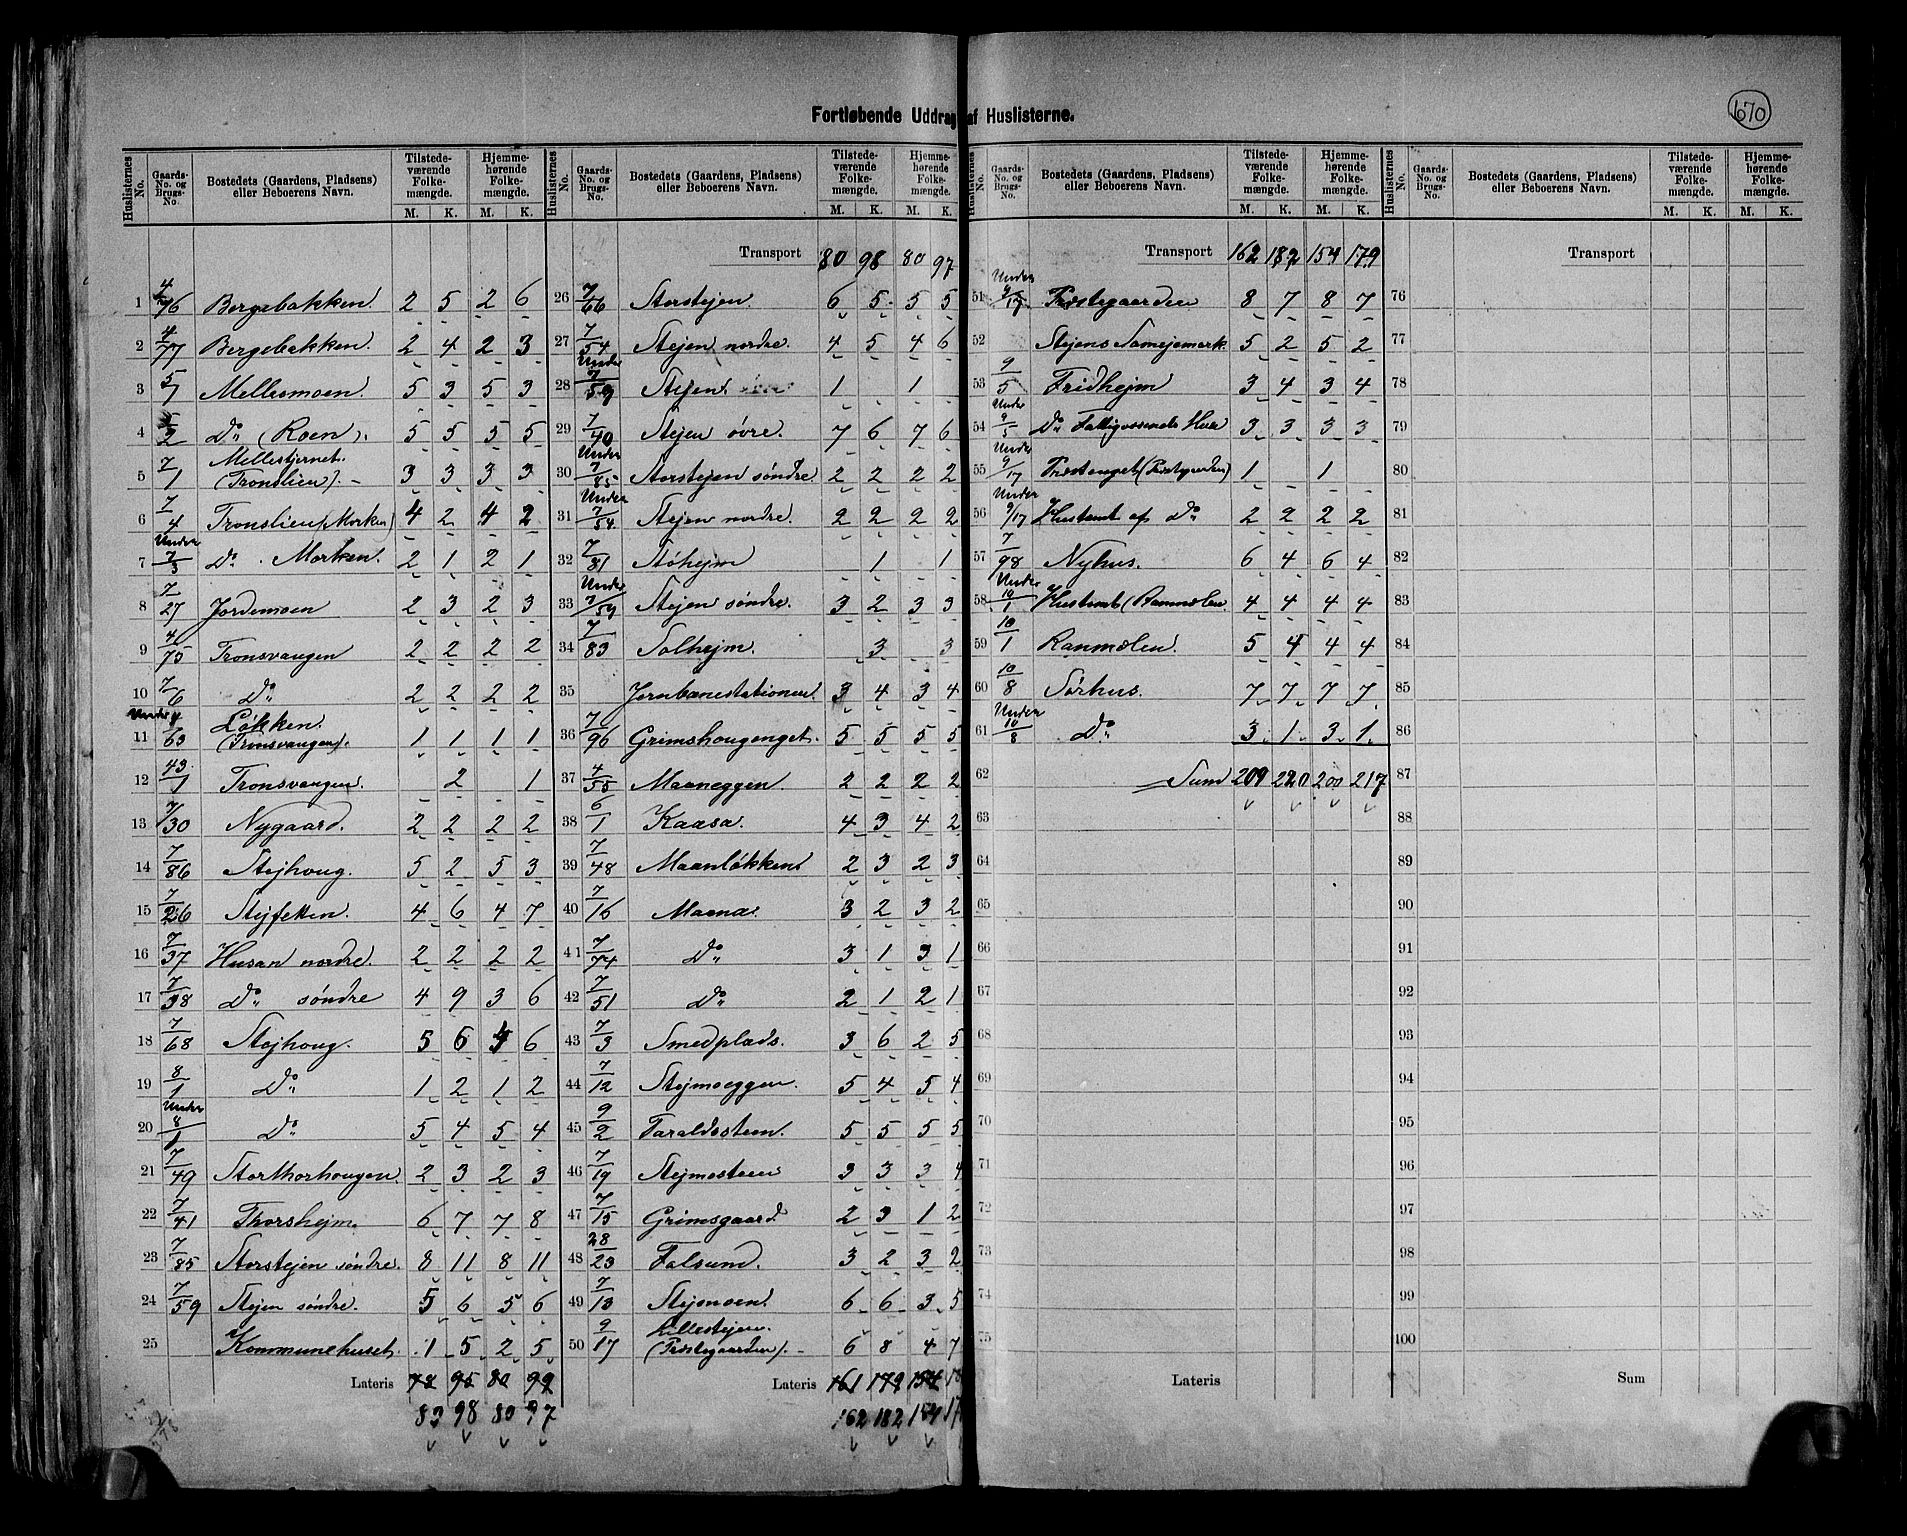 Fortløbende Uddrag af Huslisterne.
670
Huslisternes No. | Gaards-No. og Brugs-No. | Bostedets (Gaardens, Pladsens) eller Beboerens Navn. | Tilstedeværende Folkemængde. M. K. | Hjemmehørende Folkemængde. M. K.
1 4/76 Bergebakken. 2 5 2 6
2 4/77 Bergebakken. 2 4 2 3
3 5/7 Mellesmoen. 5 3 5 3
4 5/2 Do (Roen). 5 5 5 5
5 7/1 Mellestjernet. (Tronslien). 3 3 3 3
6 7/4 Tronslien (Morken) 4 2 4 2
7 Under 7/3 Do. Morken. 2 1 2 1
8 7/27 Jordemoen 2 3 2 3
9 4/75 Tronsvangen 2 2 2 2
10 7/6 Do 2 2 2 2
11 Under 4/63 Løkken. (Tronsvangen). 1 1 1 1
12 43/1 Tronsvangen. 2 1
13 7/30 Nygaard. 2 2 2 2
14 7/86 Stejhoug. 5 2 5 3
15 7/26 Stejfetten. 4 6 4 7
16 7/37 Husan nordre. 2 2 2 2
17 7/38 Do søndre 4 9 3 6
18 7/68 Stejhoug. 5 6 5 6
19 8/1 Do 1 2 1 2
20 Under 8/1 Do 5 4 5 4
21 7/49 Storthorhougen. 2 3 2 3
22 7/41 Thorshejm. 6 7 7 8
23 7/85 Storstejen søndre. 8 11 8 11
24 7/59 Stejen søndre. 5 6 5 6
25 Kommunehuset. 1 5 2 5
Lateris 78 95 80 99
83 98 80 97
Huslisternes No. | Gaards-No. og Brugs-No. | Bostedets (Gaardens, Pladsens) eller Beboerens Navn. | Tilstedeværende Folkemængde. M. K. | Hjemmehørende Folkemængde. M. K.
Transport 80 98 80 97
26 7/66 Storstejen. 6 5 5 5
27 7/54 Stejen nordre. 4 5 4 6
28 Under 7/59 Stejen 1 1
29 7/40 Stejen øvre. 7 6 7 6
30 Under 7/85 Storstejen søndre 2 2 2 2
31 Under 7/54 Stejen nordre. 2 2 2 2
32 7/81 Støhejm 1 1
33 Under 7/59 Stejen søndre. 3 2 3 3
34 7/83 Solhejm. 3 3
35 Jernbanestationen. 3 4 3 4
36 7/96 Grimshougenget. 5 5 5 5
37 4/55 Maaneggen. 2 2 2 2
38 6/1 Kaasa. 4 3 4 2
39 7/48 Maanløkken 2 3 2 3
40 7/16 Maana. 3 2 3 2
41 7/74 Do 3 1 3 1
42 7/51 Do 2 1 2 1
43 7/3 Smedplads. 3 6 2 5
44 7/12 Stejmoeggen. 5 4 5 4
45 9/2 Taraldsteen. 5 5 5 5
46 7/19 Stejmosteen 3 3 3 4
47 7/15 Grimsgaard 2 3 1 2
48 28/23 Falsund. 3 2 3 2
49 7/13 Stejmoen. 6 6 3 5
50 9/17 Lillestejen. (Præstegaarden). 6 8 4 7
Lateris 161 179 154 18
162 182 154 17
Huslisternes No. | Gaards-No. og Brugs-No. | Bostedets (Gaardens, Pladsens) eller Beboerens Navn. | Tilstedeværende Folkemængde. M. K. | Hjemmehørende Folkemængde. M. K.
Transport 162 182 154 179
51 Under 9/17 Præstegaarden 8 7 8 7
52 Stejens Samejemark. 5 2 5 2
53 9/5 Fridhejm 3 4 3 4
54 Under 9/5 Do Fattigvæsenets Huse 3 3 3 3
55 Under 9/17 Præstenget (Præstgaarden) 1 1
56 Under 9/17 Hustomt af Do 2 2 2 2
57 7/98 Nyhus. 6 4 6 4
58 Under 10/1 Hustomt (Ranmælen 4 4 4 4
59 10/1 Ranmælen. 5 4 4 4
60 10/8 Sørhus. 7 7 7 7
61 Under 10/8 Do 3 1 3 1
62 Sum 209 220 200 217
63
64
65
66
67
68
69
70
71
72
73
74
75
Lateris
Huslisternes No. | Gaards-No. og Brugs-No. | Bostedets (Gaardens, Pladsens) eller Beboerens Navn. | Tilstedeværende Folkemængde. M. K. | Hjemmehørende Folkemængde. M. K.
Transport
76
77
78
79
80
81
82
83
84
85
86
87
88
89
90
91
92
93
94
95
96
97
98
99
100
Sum